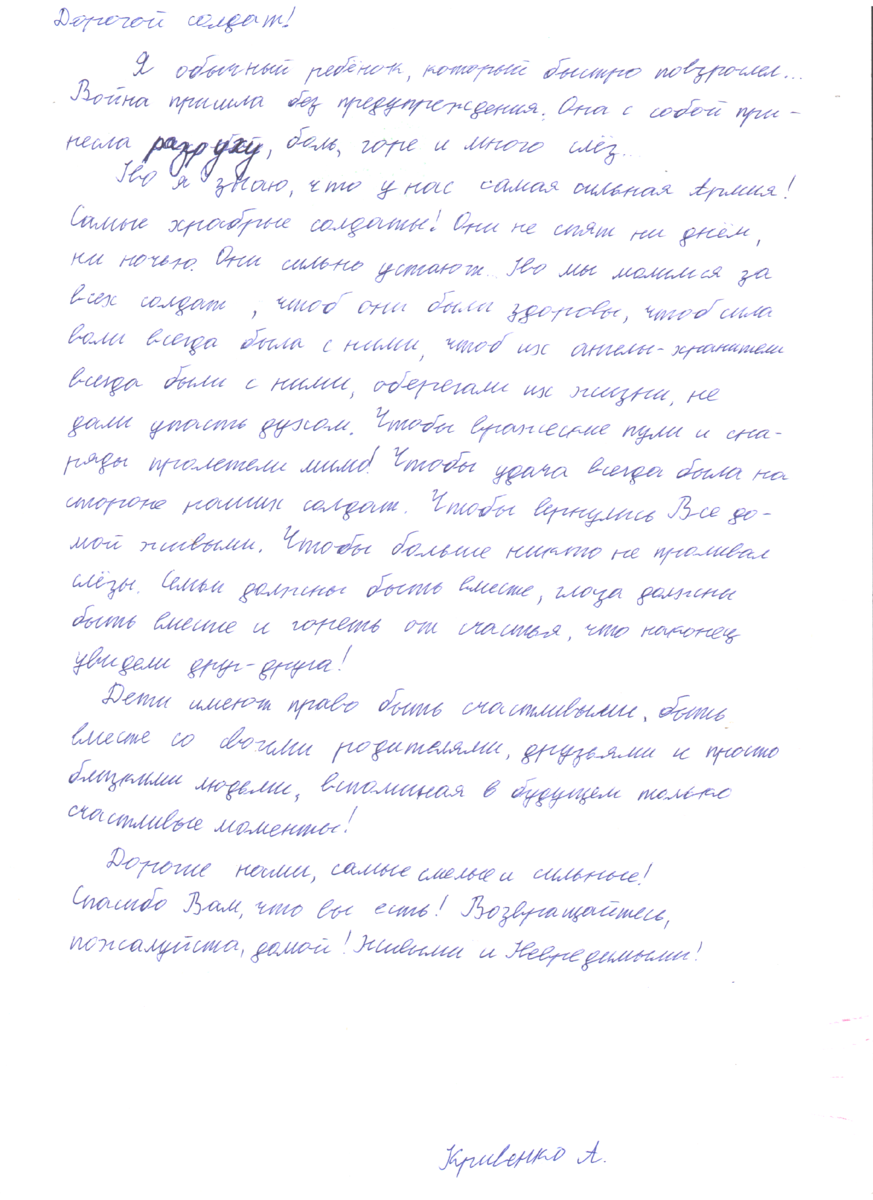 Дорогой солдат!
Я обычный ребёнок, который быстро повзрослел...
Война пришла без предупреждения. Она с собой при-
несла разруху, боль, горе и много слёз...
Но я знаю, что у нас самая сильная Армия!
Самые храбрые солдаты! Они не спят ни днём,
ни ночью. Они сильно устают... Но мы молимся за
всех солдат, чтоб они были здоровы, чтоб сила
воли всегда была с ними, чтоб их ангелы-хранители
всегда были с ними, оберегали их жизни, не
дали упасть духом. Чтобы вражеские пули и сна-
ряды пролетели мимо! Чтобы удача всегда была на
стороне наших солдат. Чтобы вернулись Все до-
мой живыми. Чтобы больше никто не проливал
слёзы. Семьи должны быть вместе, глаза должны
быть вместе и гореть от счастья, что наконец
увидели друг-друга!
Дети имеют право быть счастливыми, быть
вместе со своими родителями, друзьями и просто
близкими людьми, вспоминая в будущем только
счастливые моменты!
Дорогие наши, самые смелые и сильные!
Спасибо Вам, что вы есть! Возвращайтесь,
пожалуйста, домой! Живыми и Невредимыми!
Кривенко А.